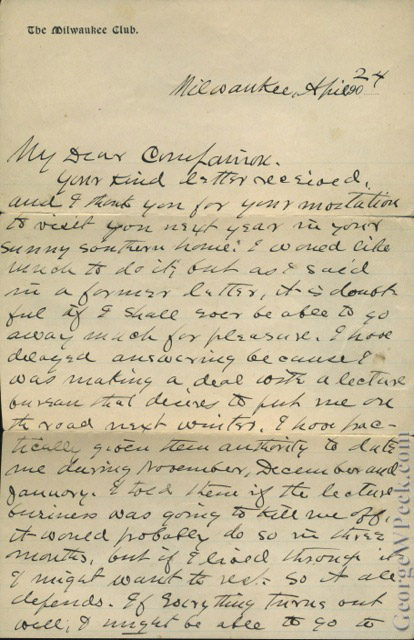 The Milwaukee Club.
Milwaukee, April 24 190
My Dear Companion.
Your kind letter received,
and I thank you for your invitation
to visit you next year in your
sunny southern home. I would like
much to do it, but as I said
in a former letter, it is doubt
ful if I shall ever be able to go
away much for pleasure. I have
delayed answering because I
was making a deal with a lecture
bureau that desires to put me on
the road next winter. I have prac-
tically given them authority to date
me during November, December and
January. I told them if the lecture
business was going to kill me off,
it would probably do so in three
months, but if I lived through it
I might want to rest. So it all
depends. If everything turns out
well, I might be able to go to
GeorgeWPeck.com